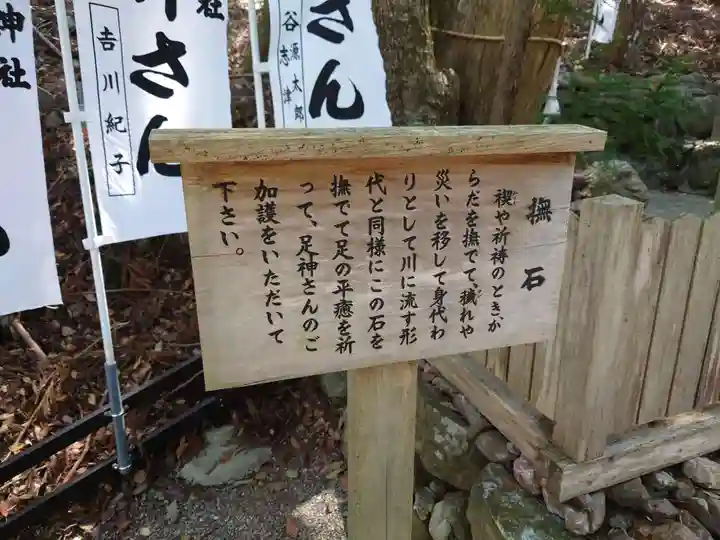 撫石
禊や祈祷のとき、か
らだを撫でて、穢れや
災いを移して身代わ
りとして川に流す形
代と同様にこの石を
撫でて足の平癒を祈
って、足神さんのご
加護をいただいて
下さい。
さん
源太郎
谷志津
社
さん
吉川紀子
神社